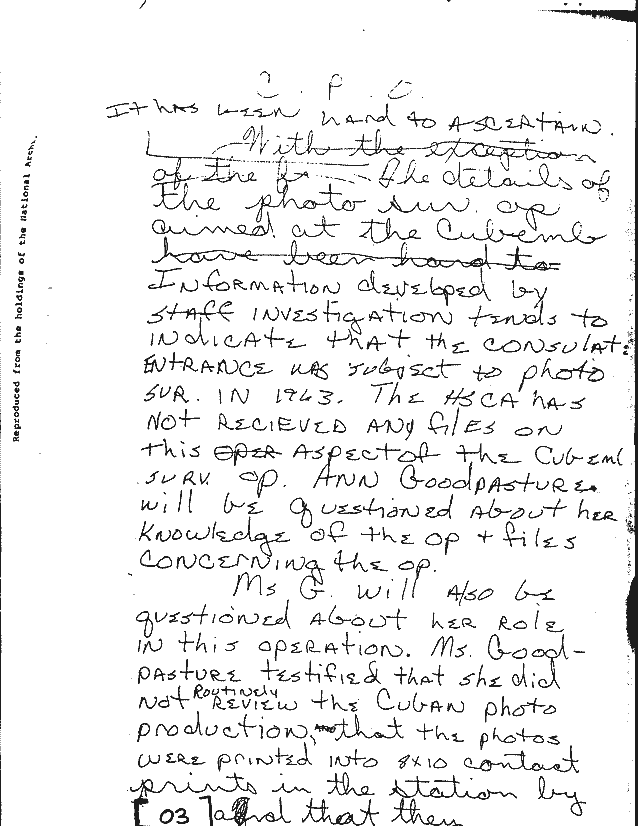 Reproduced from the holdings of the National Archi.
C. P. C.
It has been hard to ascertain.
With the exception
of the The details of
the photo sur. op
aimed at the Cubemb
have been hard to
Information developed by
staff investigation tends to
indicate that the consulat
entrance was subject to photo
sur. in 1963. The HSCA has
not recieved any files on
this oper aspect of the Cubemb
surv. op. Ann Goodpasture
will be questioned about her
knowledge of the op + files
concerning the op.
Ms G. will also be
questioned about her role
in this operation. Ms. Good-
pasture testified that she did
not Routinely review the Cuban photo
production, that the photos
were printed into 8x10 contact
prints in the station by
[03] and that then